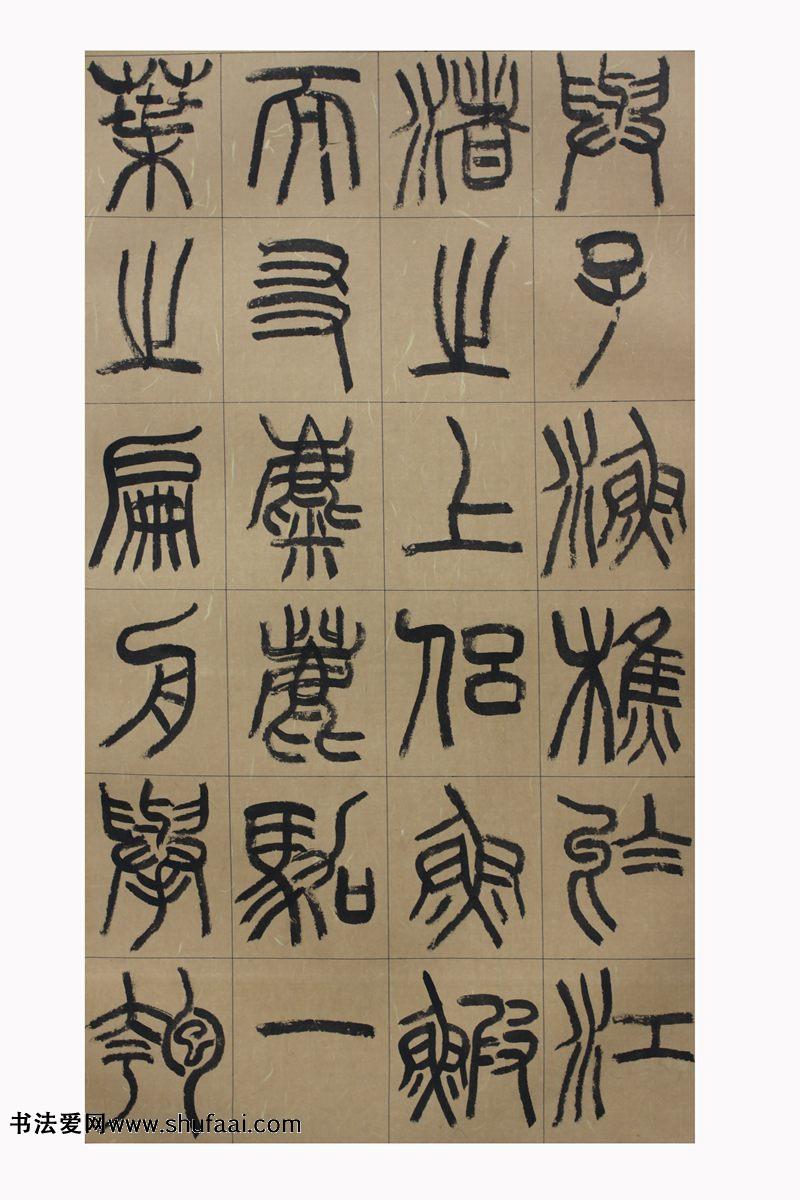 與子漁樵於江
渚之上侣魚鰕
而友麋麓駕一
葉之扁舟舉匏
书法爱网www.shufaai.com